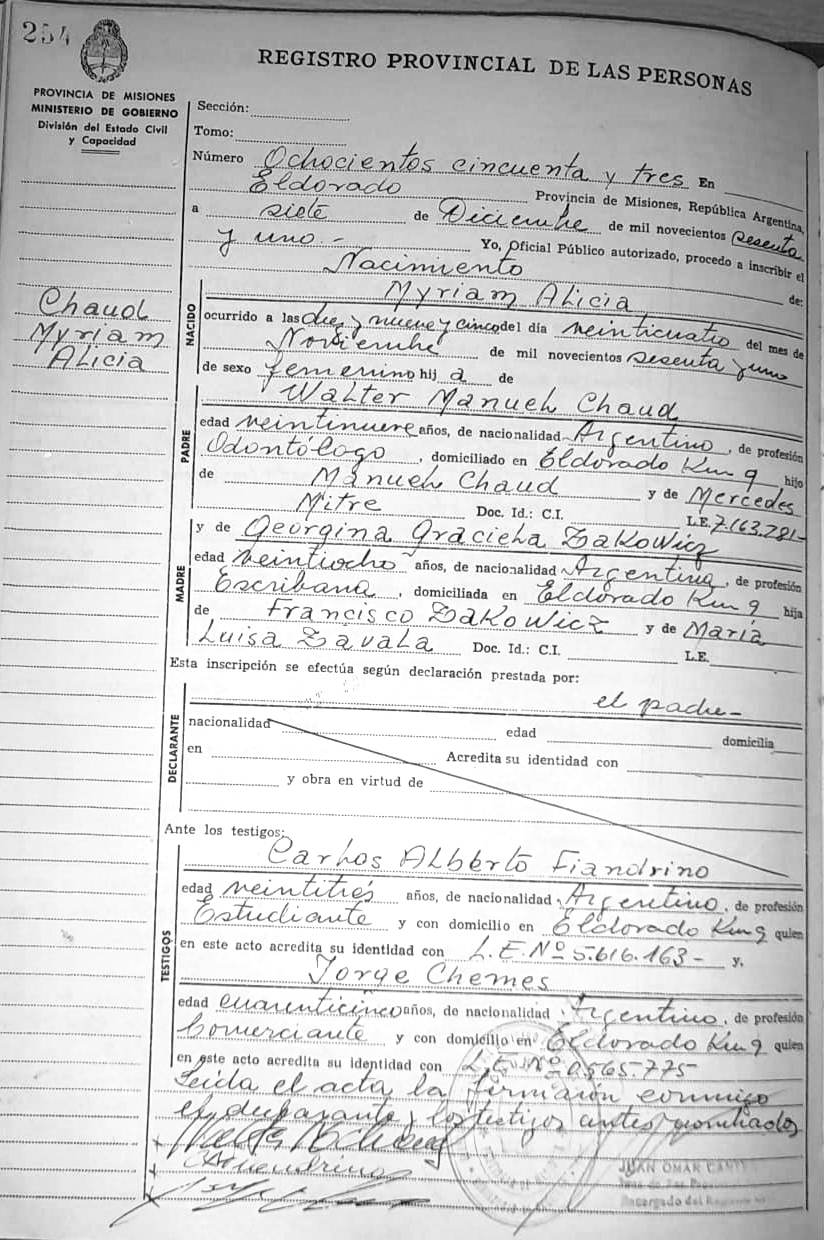 254
REGISTRO PROVINCIAL DE LAS PERSONAS
PROVINCIA DE MISIONES
MINISTERIO DE GOBIERNO
División del Estado Civil
y Capacidad
Chaud
Myriam
Alicia
Sección:
Tomo:
Número Ochocientos cincuenta y tres En
Eldorado Provincia de Misiones, República Argentina,
a siete de Diciembre de mil novecientos sesenta
y uno.- Yo, Oficial Público autorizado, procedo a inscribir el
Nacimiento de:
NACIDO
Myriam Alicia
ocurrido a las diez y nueve y cinco del día veinticuatro del mes de
Noviembre de mil novecientos sesenta y uno
de sexo femenino hij a de
PADRE
Walter Manuel Chaud
edad veintinueve años, de nacionalidad Argentino, de profesión
Odontólogo, domiciliado en Eldorado Km 9 hijo
de Manuel Chaud y de Mercedes
Mitre Doc. Id.: C.I. L.E. 7.163.281-
MADRE
y de Georgina Graciela Zakowicz
edad veintiocho años, de nacionalidad Argentina, de profesión
Escribana, domiciliada en Eldorado Km 9 hija
de Francisco Zakowicz y de María
Luisa Zavala Doc. Id.: C.I. L.E.
Esta inscripción se efectúa según declaración prestada por:
el padre-
DECLARANTE
nacionalidad edad domicilia
en Acredita su identidad con
y obra en virtud de
Ante los testigos:
TESTIGOS
Carlos Alberto Fiandrino
edad veintitrés años, de nacionalidad Argentino, de profesión
Estudiante y con domicilio en Eldorado Km 9 quien
en este acto acredita su identidad con L.E. Nº 5.616.163- y,
Jorge Chemes
edad cuarenticinco años, de nacionalidad Argentino, de profesión
Comerciante y con domicilio en Eldorado Km 9 quien
en este acto acredita su identidad con L.E. Nº 0.565.775
Leída el acta la firmaron conmigo
el declarante y los testigos antes nombrados
JUAN OMAR
Encargado del